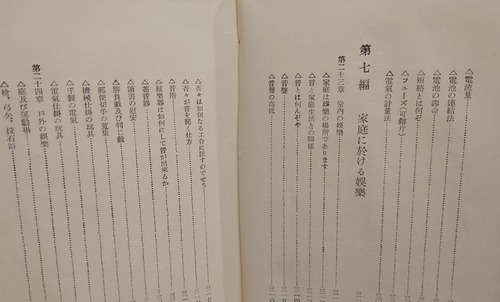 △電流量
△電池の連結法
△電池の壽命
△短絡とは何ぞ
△フューズ(可鎔片)
△電氣の計量法
第七編 家庭に於ける娯樂
第二十三章 室內の娯樂
△家庭は娯樂の場所であります
△音と家庭生活との關係
△音とは何んぞや
△音聲
△音聲の高低
△吾々は如何なる工合に話すのでせう
△吾々が音を聞く仕方
△音樂
△絃樂器は如何にして音が出來るか
△蓄音器
△讀書の慰安
△勝負戲及び判じ戲
△郵便切手の蒐集
△機械仕掛の玩具
△電氣仕掛の玩具
△手製の電氣
第二十四章 戶外の娯樂
△庭及び運動場
△槍、弓矢、投石器